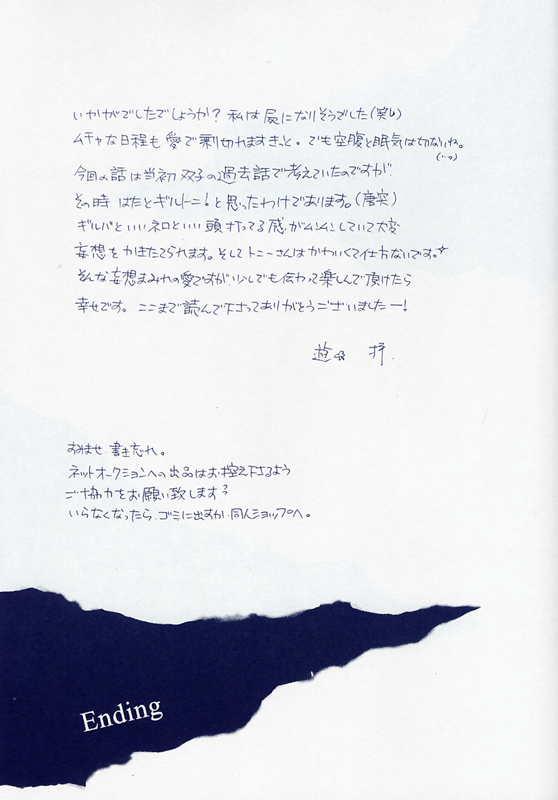 いかがでしたでしょうか？ 私は屍になりそうでした(笑)
ムチャな日程も愛で乗り切れますきっと。でも空腹と眠気は切ないね。
今回の話は当初 双子の過去話で考えていたのですが
その時 はたとギルトニー！と思ったわけであります。(唐突)
ギルバといいネロといい 頭 打ってる感がムンムンしていて大変
妄想をかきたてられます。そしてトニーさんはかわいくて仕方ないです。
そんな妄想まみれの愛ですが、少しでも伝わって楽しんで頂けたら
幸せです。ここまで読んで下さってありがとうございましたー！
遊
すみませ、書き忘れ。
ネットオークションへの出品はお控え下さるよう
ご協力をお願い致します
いらなくなったら、ゴミに出すか、同人ショップへ。
Ending